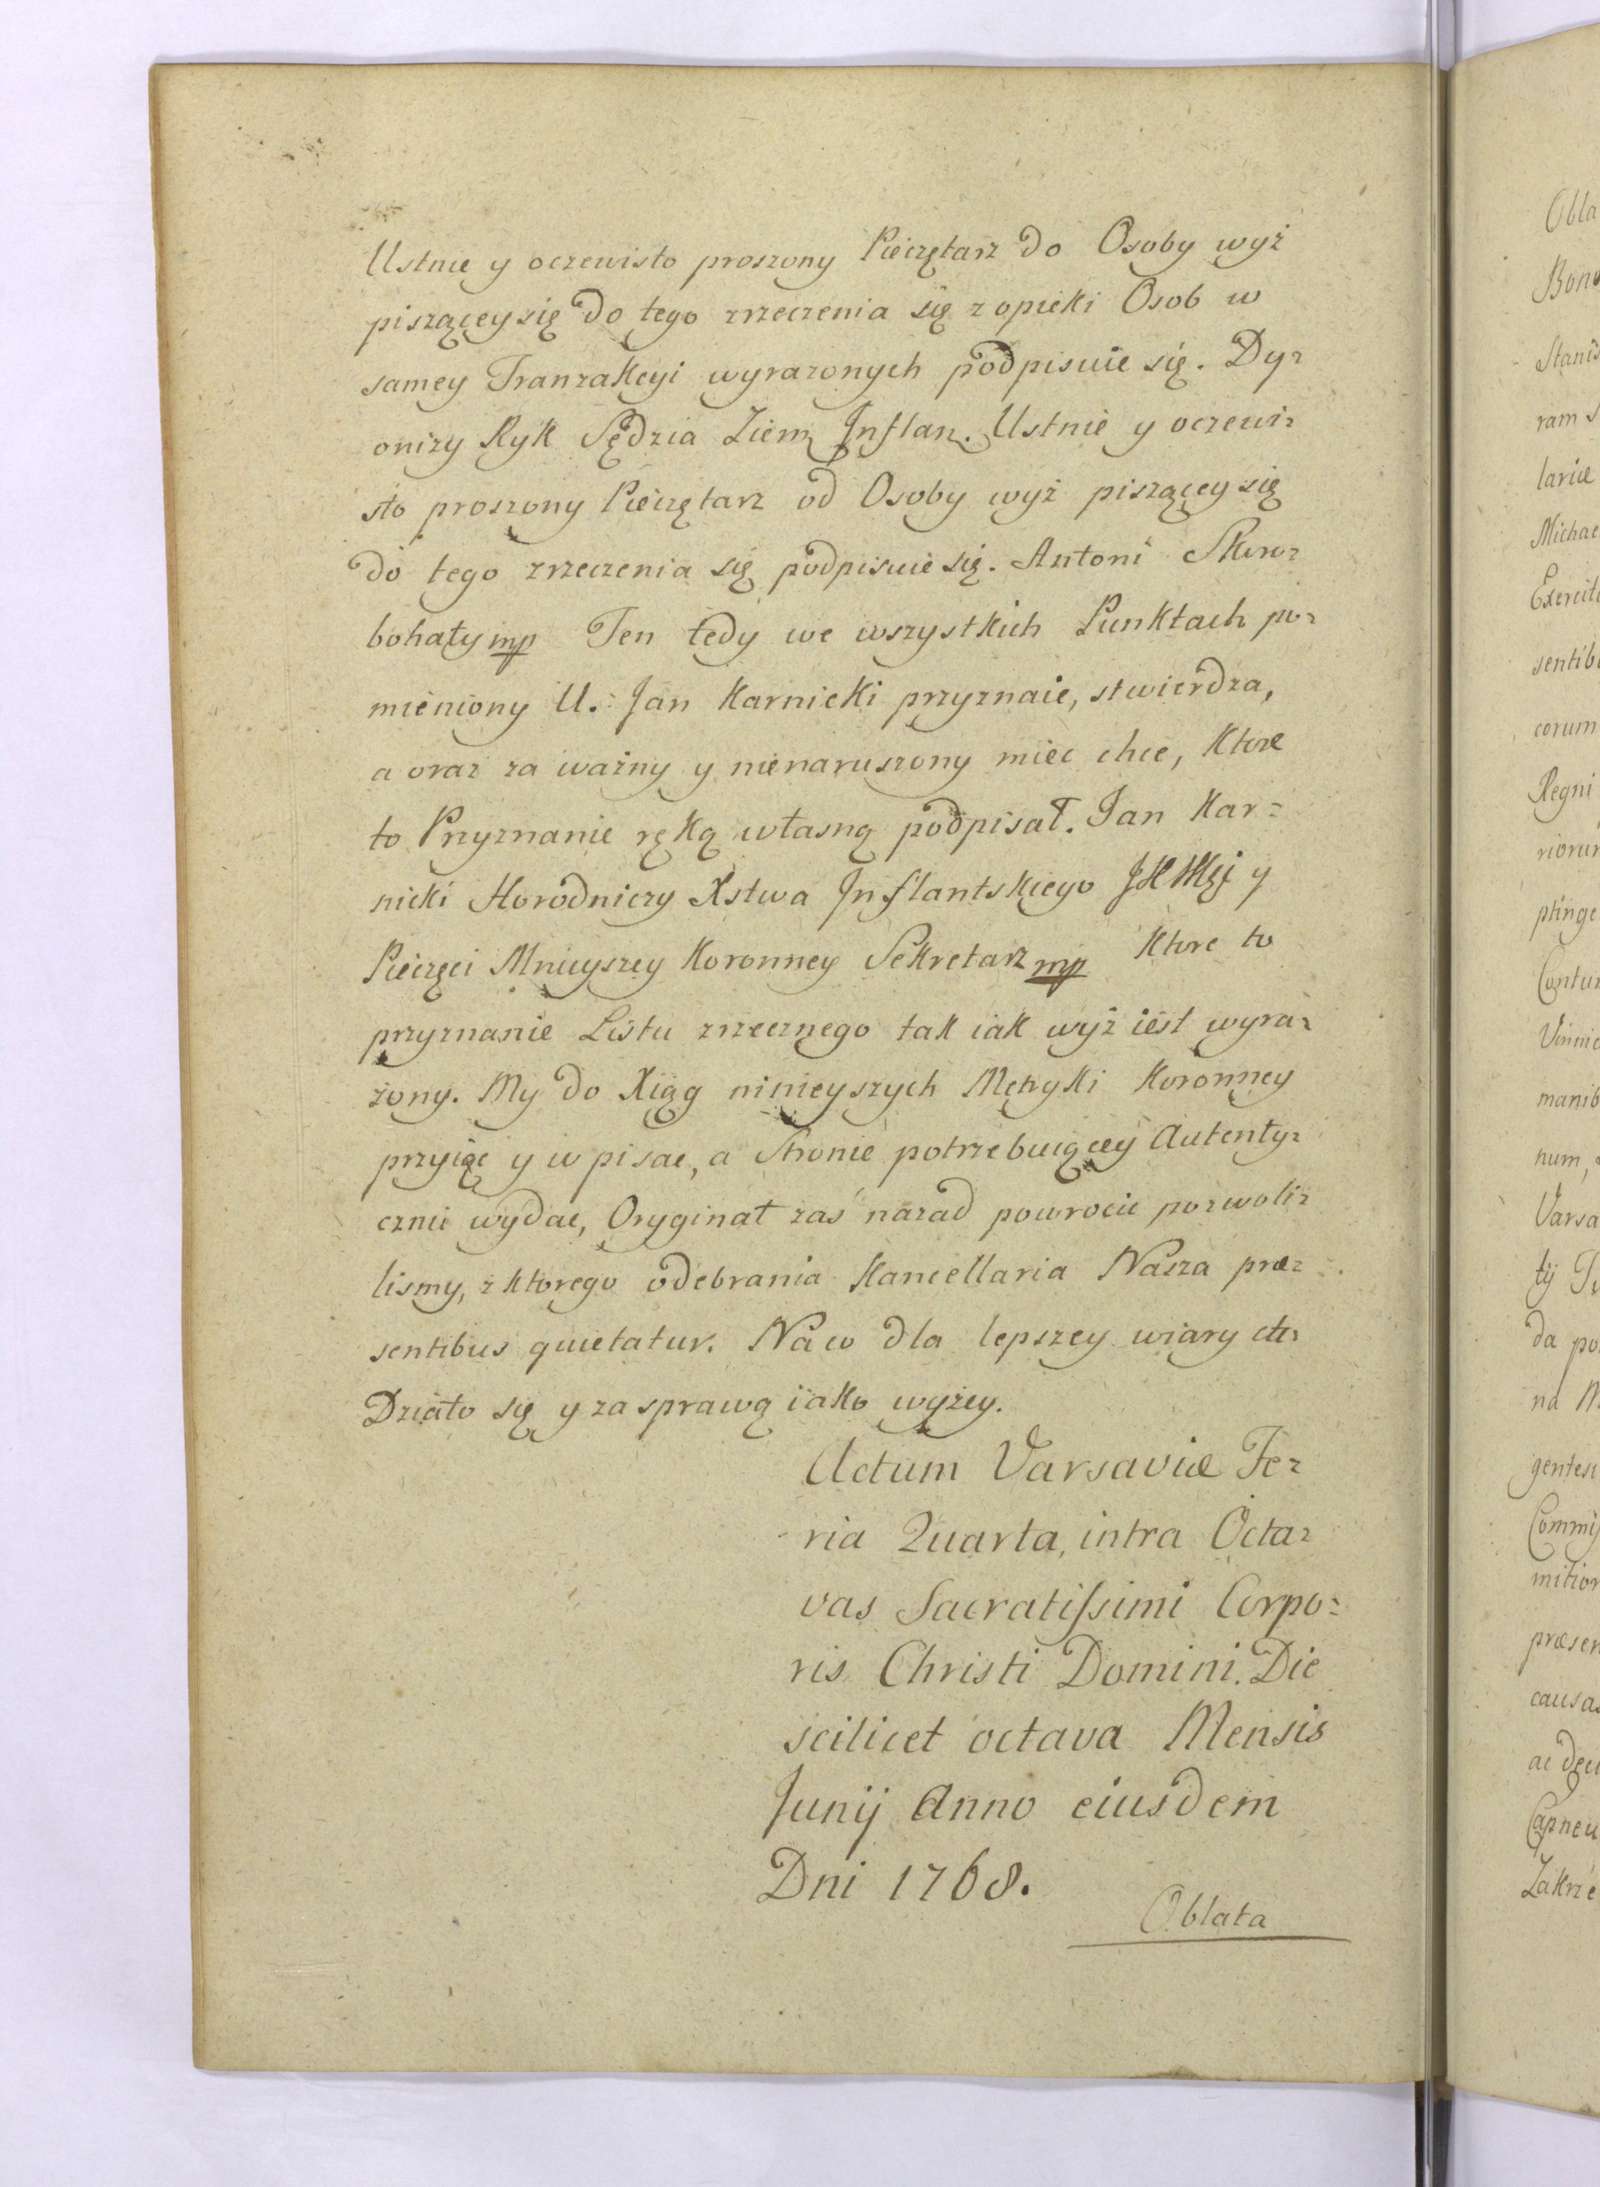 Ustnie y oczewisto proszony Pieczętarz do Osoby wyż
piszącey się do tego zrzeczenia się z opieki Osob w
samey Tranzakcyi wyrazonych podpisuie się. Dy=
onizy Ryk Sędzia Ziem Inflan. Ustnie y oczewi=
sto proszony Pieczętarz od Osoby wyż piszącey się
do tego zrzeczenia się podpisuie się. Antoni Skoro=
bohaty mp Ten tedy we wszystkich Punktach po=
mieniony U. Jan Karnicki przyznaie, stwierdza,
a oraz za ważny y nienaruszony miec chce, Ktore
to Przyznanie ręką własną podpisał. Jan Kar=
nicki Horodniczy Xstwa Inflantskiego JKMci y
Pieczęci Mnieyszey Koronney Sekretarz mp Ktore to
przyznanie Listu zrzecznego tak iak wyż iest wyra=
żony. My do Xiąg ninieyszych Metryki Koronney
przyiąc y wpisac, a Stronie potrzebuiącey Autenty=
cznie wydac, Oryginał zaś nazad powrocic pozwoli=
lismy, z ktorego odebrania Kancellaria Nasza præ=
sentibus quietatur. Na co dla lepszey wiary etc
Działo się y za sprawą iako wyżey.
Actum Varsaviæ Fe=
ria Quarta, intra Octa=
vas Sacratissimi Corpo=
ris Christi Domini. Die
scilicet octava Mensis
Junij Anno eiusdem
Dni 1768.
Oblata
Obla
Bon
Stanis
ram S
lariæ
Michae
Exercit
sentib
corum
Regni
rioru
ptinge
Contu
Vinnic
manib
num,
Varsa
tij
da po
na M
gentes
Commis
mitior
præsen
causas
ac
Capneu
Zakrze